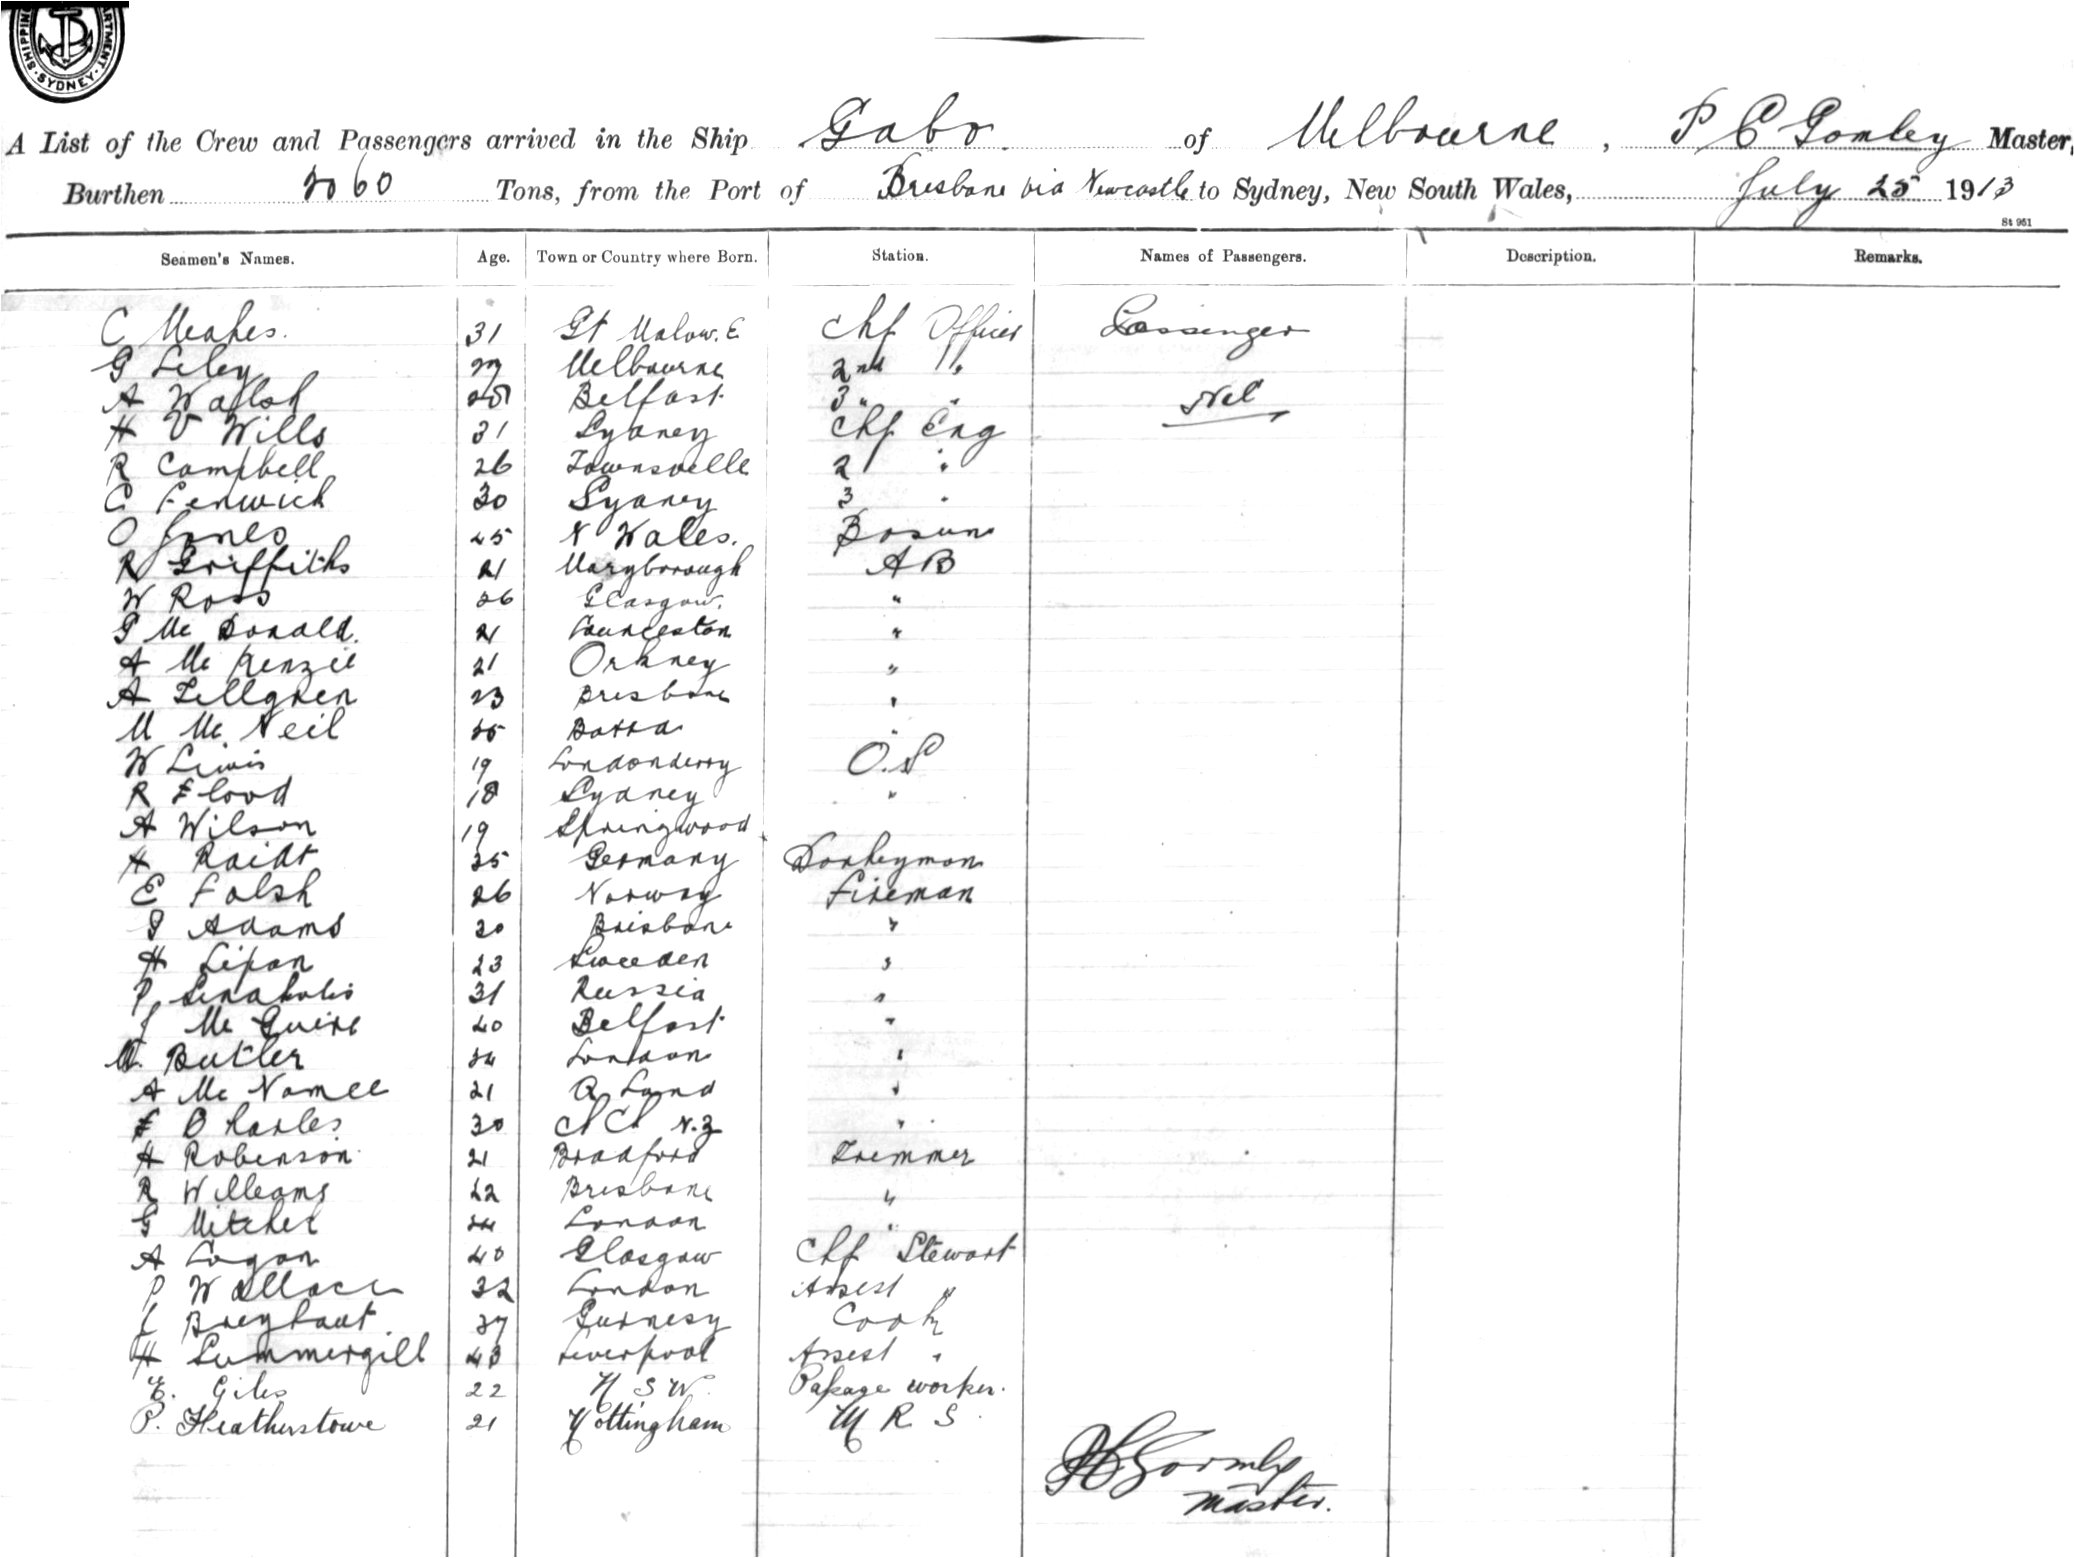 SHIPPING DEPARTMENT SYDNEY
A List of the Crew and Passengers arrived in the Ship Gabo of Melbourne, P C Gomley Master,
Burthen 2060 Tons, from the Port of Brisbane via Newcastle to Sydney, New South Wales, July 25 1913
St 951
Seamen's Names. Age. Town or Country where Born. Station. Names of Passengers. Description. Remarks.
C Meakes. 31 Gt Malow. E Chf Officer Passenger
G Liley Melbourne 2nd "
A Walsh Belfast 3 " " Nil
H V Wills 31 Sydney Chf Eng
R Campbell 26 Townsville 2 "
C Fenwick 30 Sydney 3 "
O Jones 45 N Wales. Bosun
R Griffiths 21 Maryborough A B
W Ross 26 Glasgow. "
G Mc Donald. 21 Launceston "
A Mc Kenzie 21 Orkney "
A Tellgren 23 Brisbane "
M Mc Neil 25 Barra "
W Liwis 19 Londonderry O.S
R Flood 18 Sydney "
A Wilson 19 Springwood
H Raidt 35 Germany Donkeyman
E Falsh 26 Norway Fireman
G Adams 30 Brisbane "
H Lipan 23 Sweeden "
P 31 Russia "
J Mc Guire 40 Belfast "
W. Butler 34 London "
A Mc Namee 21 A Land "
F Charles 30 Ch Ch N.Z "
H Robinson 21 Bradford Tremmer
R Williams 22 Brisbane "
G Mitchel 24 London "
A Logan 40 Glasgow Chf Stewart
P Wallace 32 London Assest "
J Breyhaut 37 Gurnesy Cook
H Summergill 43 Liverpool Assest "
E. Giles 22 N S W. Pakage worker.
P. Heatherstowe 21 Nottingham M R S.
P C Gormley
master.